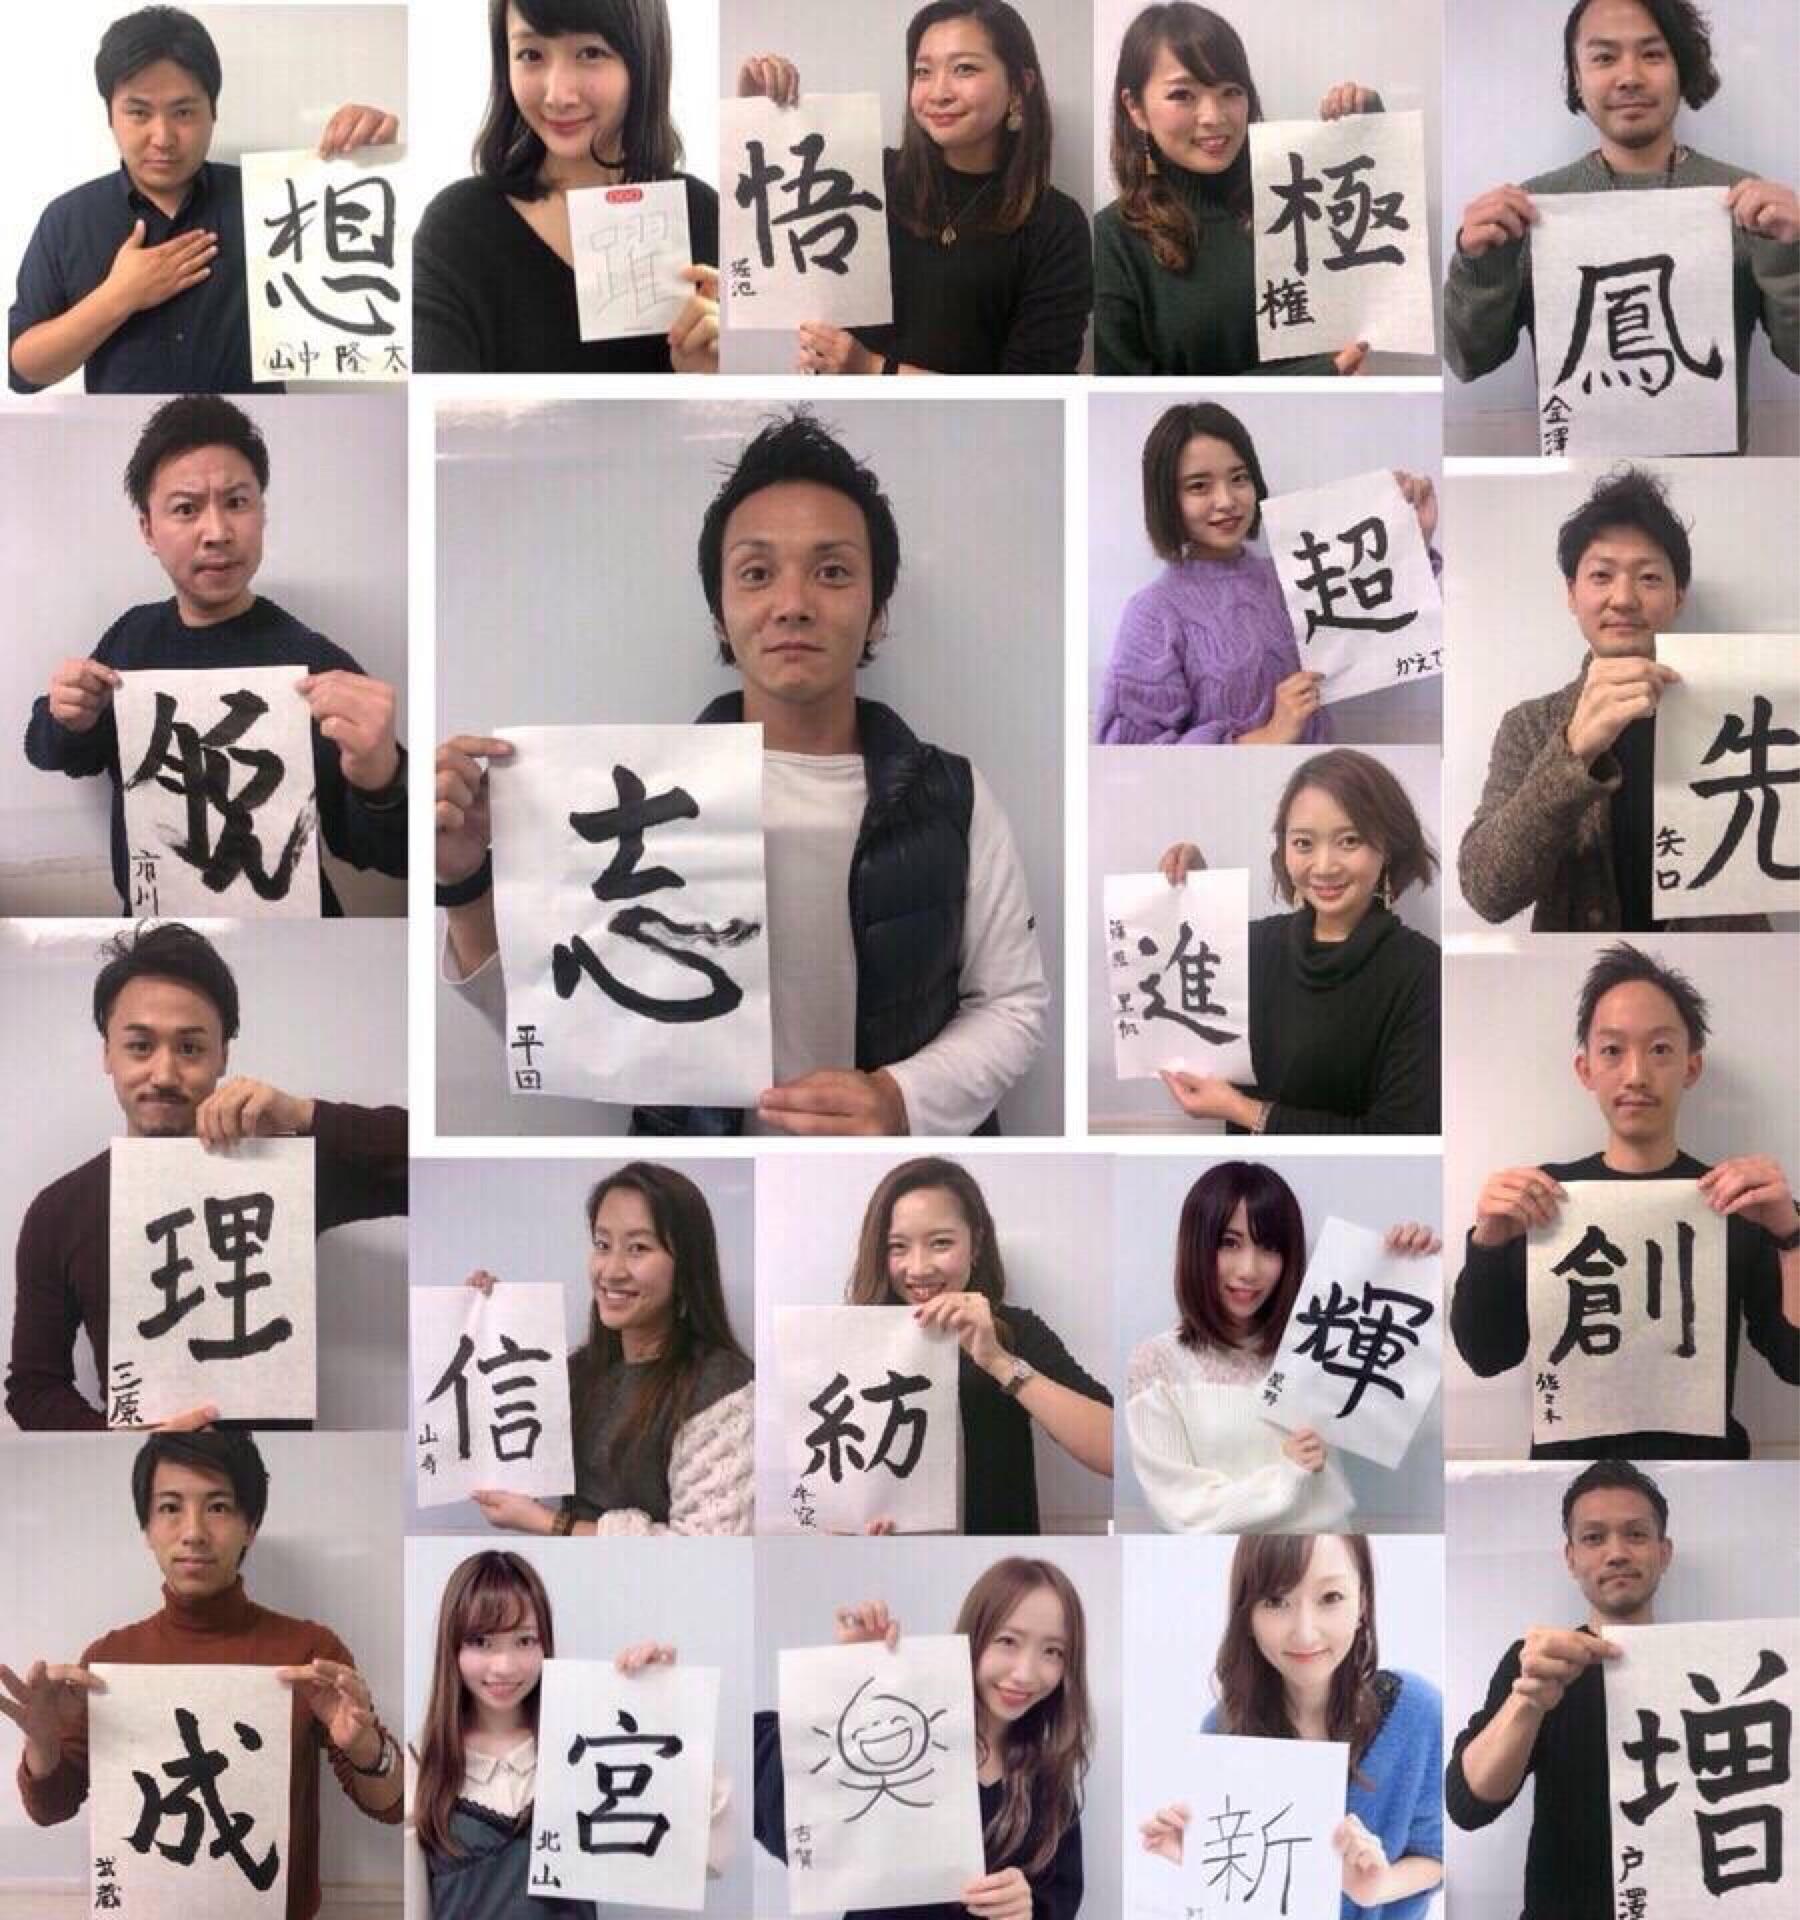 想
山中 隆太
躍
悟
堀池
極
権
鳳
金澤
鋭
市川
志
平田
超
かえで
先
矢口
進
理
三原
創
佐々木
信
紡
輝
星野
成
武蔵
宮
北山
楽
古賀
新
増
戸澤